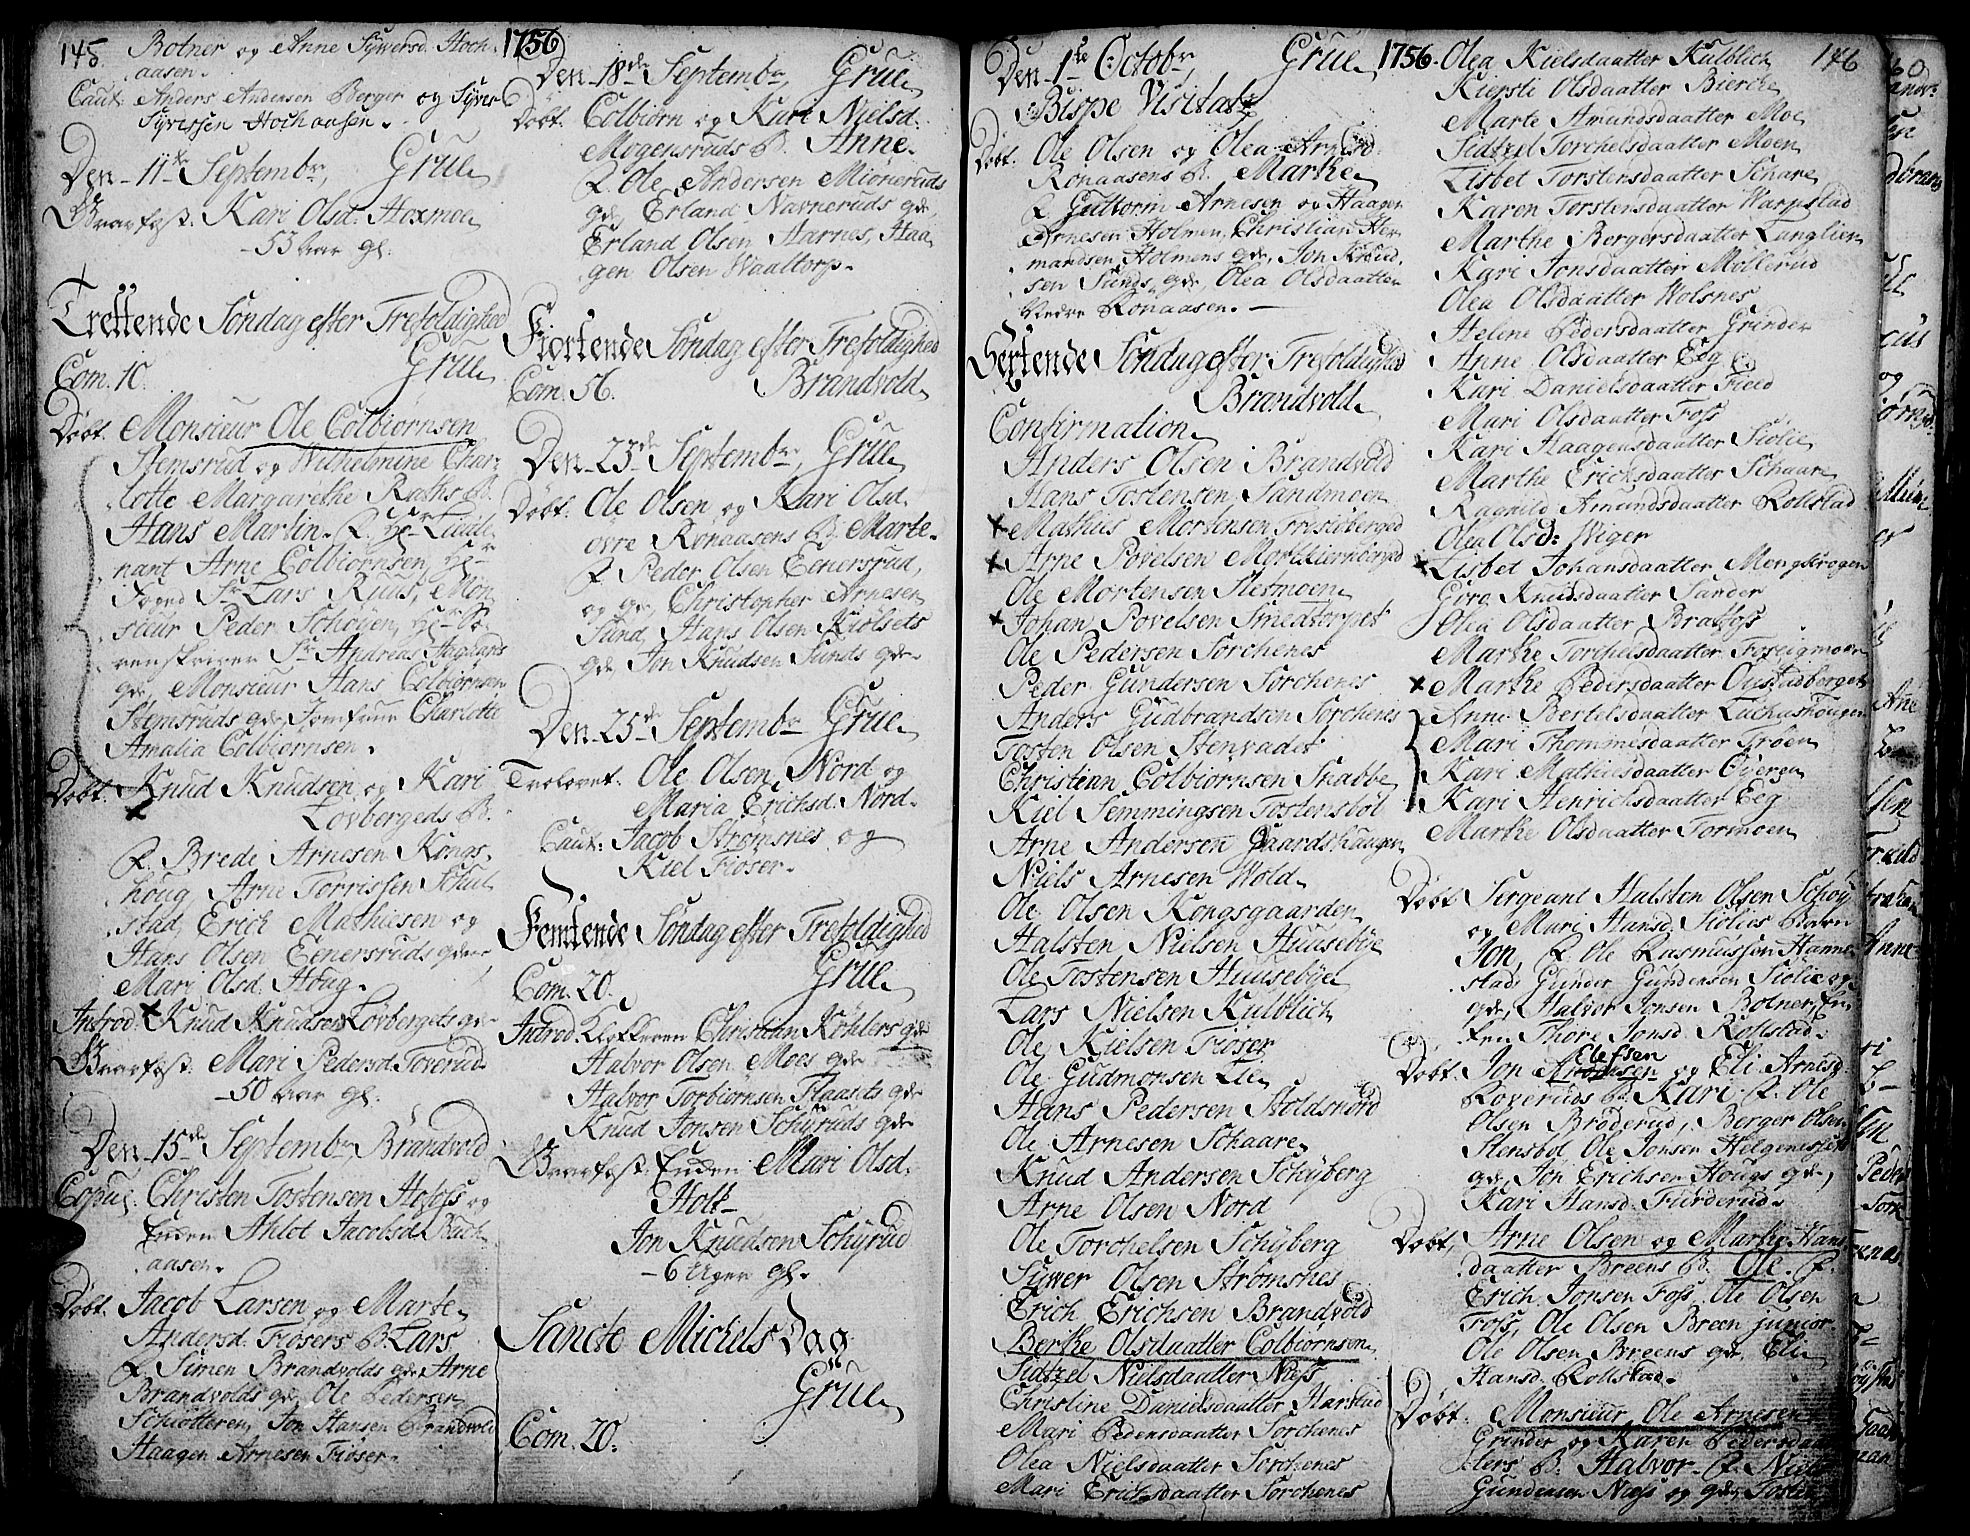 145. Botner og Anne Sÿwersd. Hoch-
aasen.
Caut: Anders Andersen Berger og Syver
Syversen Hochaasen.
Den 11te Septembr, Grue
Kari Olsd. Hoxmoe
53 aar gl.
Trettende Søndag efter Trefoldighed
Com. 10. Grue
Døbt. Monsieur Ole Colbiørnsen
Stemsrud og Wilhelmine Char-
lotte Margarethe Raths B.
Hans Martin. F. Hr Lieute-
nant Arne Colbiørnsen, Hr
Foged Sr Lars Riiis, Mon-
sieur Peder Schøyen, Hr So-
renskriver Sr Andreas
gde, Monsieur Hans Colbiørnsen
Stemsruds gde, Jomfrue Charlotte
Amalia Colbiørnsen.
Døbt. Knud Knudsen og Kari
Lovbergeds B.
F. Brede Arnesen Kongs-
houg Arne Torrissen Skul-
stad, Erich Mathiesen og
Hans Olsen Eenersruds gde
Mari Olsd. Houg.
Introd. Knud Knudsen Lovbergets gde
Mari Pedersd. Toverud
50 aar gl.
Den 15de Septembr Brandvold
Copul. Christen Tostensen Hofoss og
Enken Ahlet Jacobsd. Rach-
aasen.
Døbt. Jacob Larsen og Marte
Andersd. Fiøsers B. Lars
F. Simen Brandvolds gde Arne
Brandvolds gde, Ole Pedersen
Schiotteren, Jon Hansen Brandvold
Haagen Arnesen Fiøser.
1756
Den 18de Septembr, Grue
Døbt. Colbiørn og Kari Nielsd.
Mogensruds B. Anne.
F. Ole Andersen Mioneruds
gde, Erland Navneruds gde,
Erland Olsen Harnes, Haa-
gen Olsen Waaltorp.
Fiortende Søndag efter Trefoldighed
Com. 56. Brandvold
Den 23de Septembr, Grue
Døbt. Ole Olsen og Kari Olsd.
øvre Ronaasens B. Marte.
F. Peder Olsen Eenersrud,
og gde, Christopher Arnesen
Sund, Hans Olsen Kiølsets
gde Jon Knudsen Sunds gde.
Den 25de Septembr Grue
Trolovet. Ole Olsen Nord og
Maria Ericksd. Nord.
Caut: Jacob Strømsnes og
Kiel Fiøser.
Femtende Søndag efter Trefoldighed
Com. 20. Grue
Introd. Klokkeren Christian Köhlers gde
Halvor Olsen Moes gde
Halvor Torbiørnsen Flaaets gde
Knud Jonsen Schÿruds gde
Enken Mari Olsd.
Holt
Jon Knudsen Schyrud
6 Uger gl.
Sancte Michels Dag
Grue
Com. 20.
Den 1te Octobr, Grue 1756.
Bispe Visitatz
Døbt. Ole Olsen og Olea Arnesd.
Ronaasens B. Marthe
F. Guttorm Arnesen og Haagen
Arnesen Holmen, Christian Her-
mandsen Holmens gde, Jon Knud-
sen Sunds gde, Olea Olsdaatter
Nedre Ronaasen.
Sextende Søndag efter Trefoldighed
Brandvold
Confirmation
Anders Olsen Brandvold
Hans Tostensen Sandmoen
x Mathus Mortensen
x Arne Povelsen
Ole Mortensen Slesmoen
x Johan Povelsen Smeatorpet
Ole Pedersen Sorchenes
Peder Gundersen Sorchenes
Anders Gudbrandsen Sorchenes
Tosten Olsen Stenvadet
Christian Colbiornsen Snabbe
Kiel Semmingsen Tostensbøl
Arne Andersen Gaardshaugen
Niels Arnesen Wold
Ole Olsen Kongsgaarden
Halsten Nielsen Huusebÿe
Ole Tostensen Huusebÿe
Lars Nielsen Kulblich
Ole Kielsen Fiøser
Ole Gudmonsen Lie
Hans Pedersen Stoldsnord
Ole Arnesen Schaare
Knud Andersen Schÿberg
Arne Olsen Nord
Ole Torchelsen Schÿberg
Sÿwer Olsen Strømsnes
Erich Erichsen Brandvold
Berthe Olsdaatter Colbiørnsen
Sidtzel Nielsdaatter Næss
Christine Danielsdaatter Harstad
Mari Pedersdaatter Sorchenes
Olea Nielsdaatter Sorchenes
Mari Ericksdaatter Sorchenes
Olea Kielsdaatter Kulblich 146
Kiersti Olsdaatter Bierche
Marte Amundsdaatter Moe
Sidtzel Torchelsdaatter Moen
Lisbet Torstensdaatter Schare
Karen Torstensdaatter Warpstad
Marthe Bergersdaatter Langlien
Kari Jonsdaatter Møllerud
Olea Olsdaatter Wolsnes
Helene Pedersdaatter Grinder
Anne Olsdaatter Eeg
Kari Danielsdaatter Field
Mari Olsdaatter Foss
Kari Haagensdaatter Siolie
Marthe Ericksdaatter Schaare
Ragnild Amundsdaatter Rollstad
Olea Olsd: Wiger
x Lisbet Johansdaatter Mengkrogen
Goro Knudsdaatter Sander
Olea Olsdaatter Bratfoss
Marthe Torchelsdaatter
x Marthe Pedersdaatter
Anne Bertelsdaatter
Mari Thommesdaatter Trøen
Kari Mathiisdaatter Øyeren
Kari Henrichsdaatter Eeg
Marthe Olsdaatter Tormoen
Døbt Sergeant Halsten Olsen Schøy
og Mari Hansd. Siolies Barn
Jon, F. Ole Rasmussen Hanne-
stad, Gunder Gundersen Siolie og
gde, Halvor Jonsen Botner, En-
ken Thore Jonsd. Rollstad.
Elefsen
Døbt. Jon og Eli Arnesd.
Roveruds B. Kari F. Ole
Olsen Brøderud, Berger Olsen
Stensbøl Ole Jonsen Helgenesset
gde, Jon Erichsen Hougs gde,
Kari Hansd. Furderud.
Døbt. Arne Olsen og Marthe Hans-
daatter Breens B. Ole. F.
Erich Jonsen Foss. Ole Olsen
Foss, Ole Olsen Breen junior.
Ole Olsen Breens gde, Eli
Hansd. Rollstad.
Døbt. Monsieur Ole Arnesen
Grinder og Karen Pedersdaat-
ters B. Halvor. F. Niels
Gundersen Næss og gde, Tosten